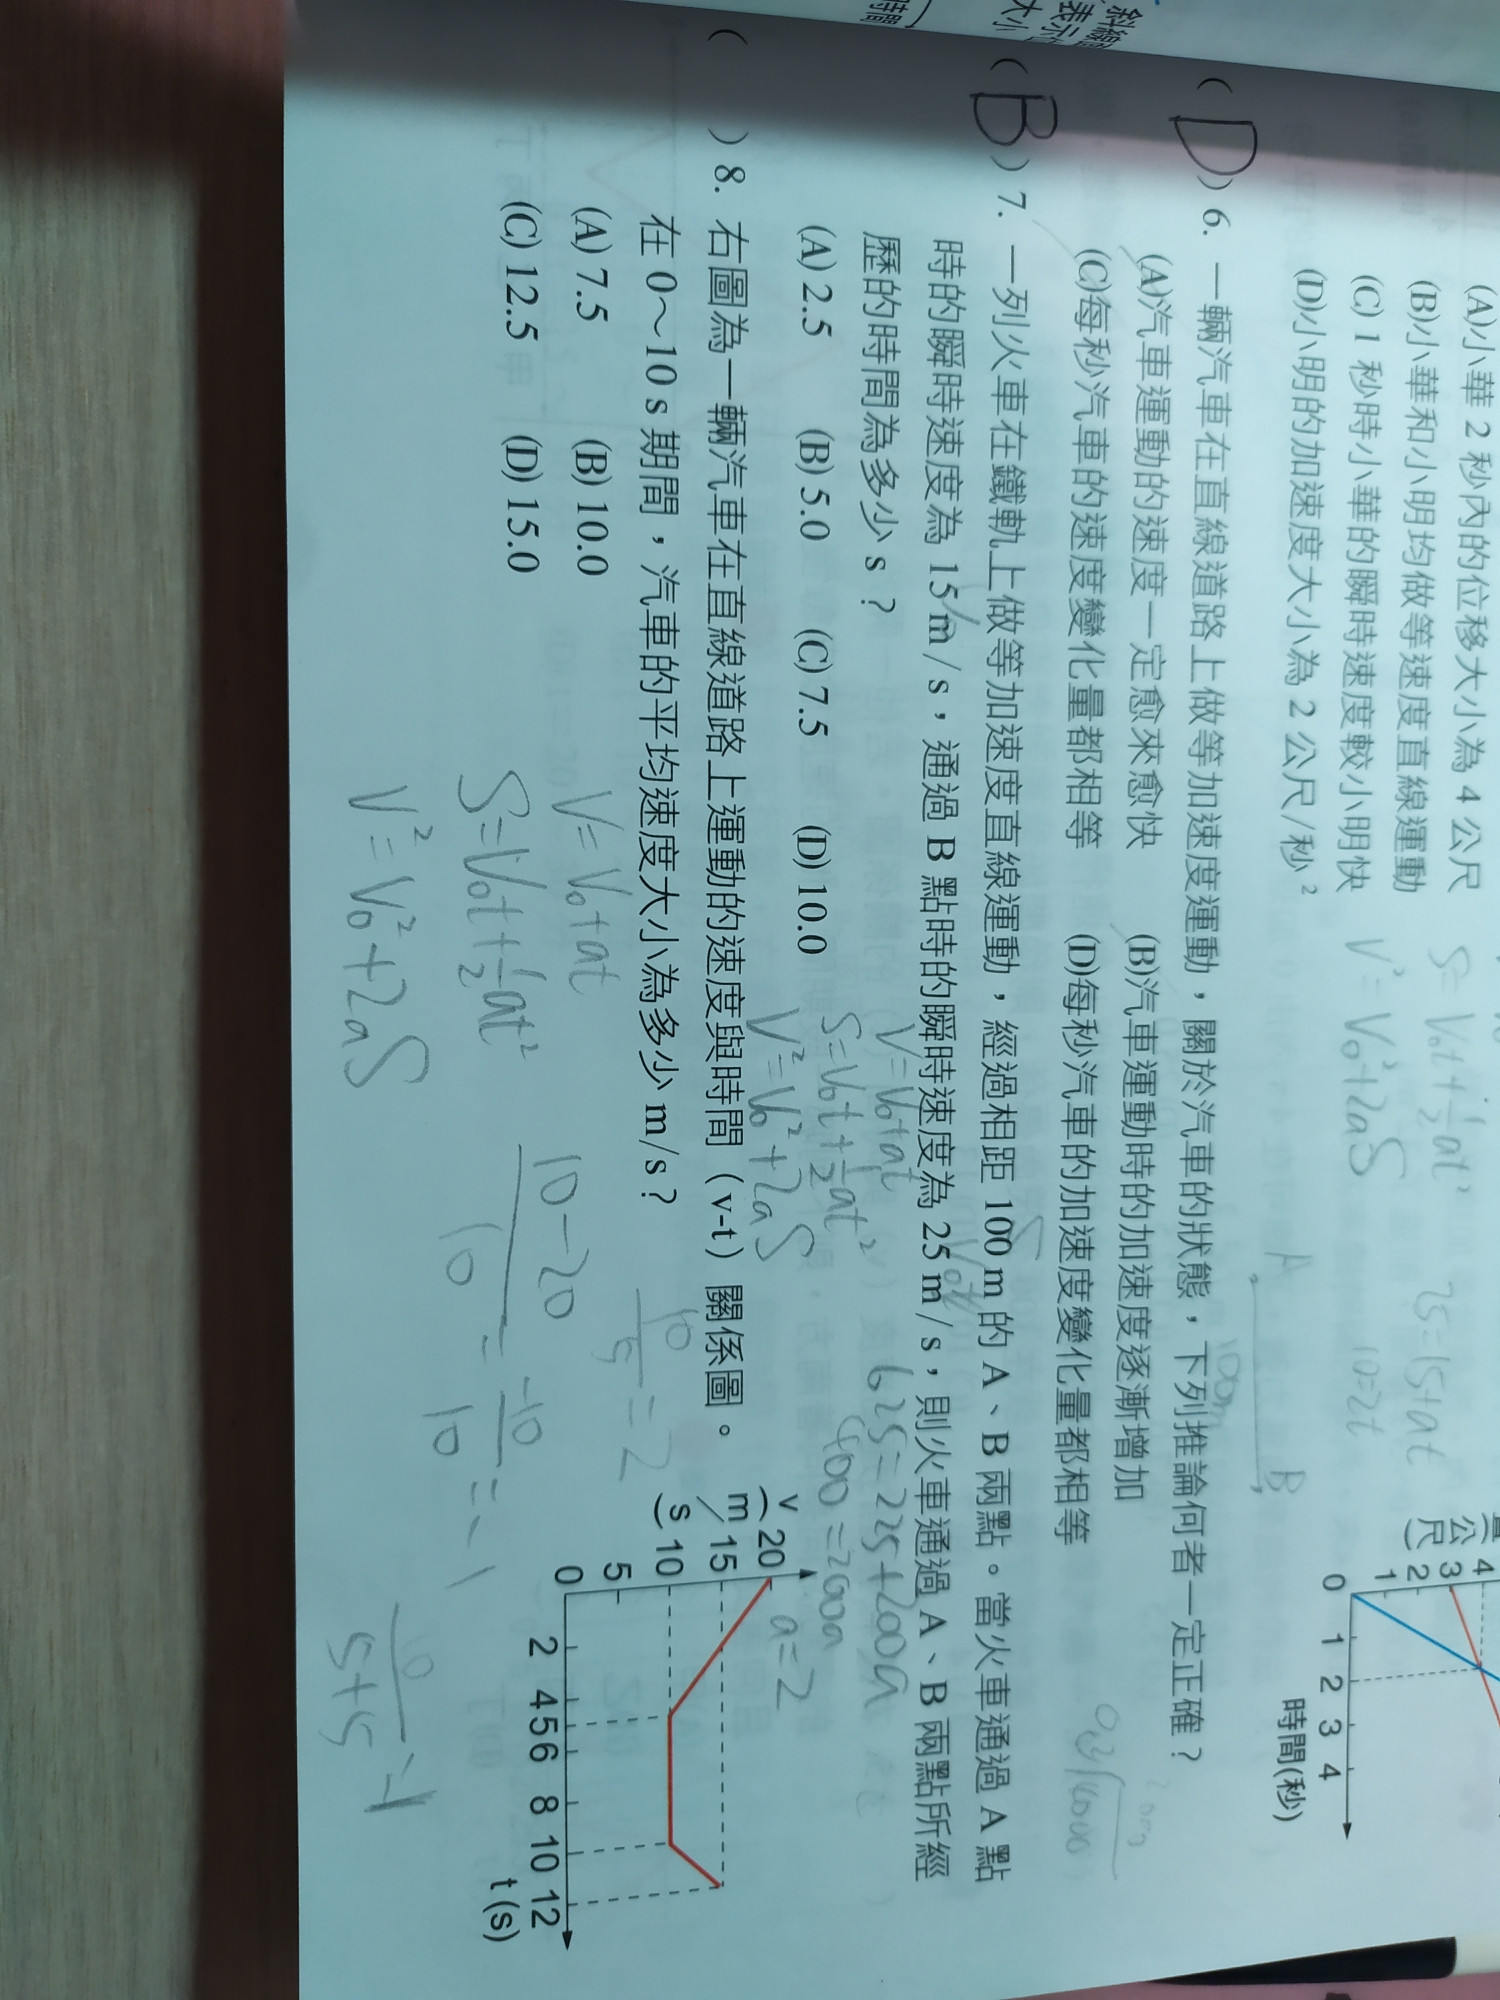 斜線
表示
大小
時間
(A)小華 2 秒內的位移大小為 4 公尺
(B)小華和小明均做等速度直線運動
(C) 1 秒時小華的瞬時速度較小明快
(D)小明的加速度大小為 2 公尺/秒²
S= V₀t+½at²
V²= V₀²+2aS
25=15+at
10=2t
公尺
4
3
2
1
0
1 2 3 4
時間(秒)
( D ) 6. 一輛汽車在直線道路上做等加速度運動，關於汽車的狀態，下列推論何者一定正確？
(A)汽車運動的速度一定愈來愈快 (B)汽車運動時的加速度逐漸增加
(C)每秒汽車的速度變化量都相等 (D)每秒汽車的加速度變化量都相等
A B
100m
( B ) 7. 一列火車在鐵軌上做等加速度直線運動，經過相距 100 m 的 A、B 兩點。當火車通過 A 點
時的瞬時速度為 15 m / s，通過 B 點時的瞬時速度為 25 m / s，則火車通過 A、B 兩點所經
歷的時間為多少 s？
(A) 2.5 (B) 5.0 (C) 7.5 (D) 10.0
V=V₀+at
S=V₀t+½at²
V²=V₀²+2aS
625=225+200a
400=200a
a=2
( ) 8. 右圖為一輛汽車在直線道路上運動的速度與時間（v-t）關係圖。
在 0～10 s 期間，汽車的平均速度大小為多少 m/s？
(A) 7.5 (B) 10.0
(C) 12.5 (D) 15.0
V=V₀+at
S=V₀t+½at²
V²=V₀²+2aS
10/5=2
10-20/10=-10/10=-1
v(m/s)
20
15
10
5
0
2 4 5 6 8 10 12
t (s)